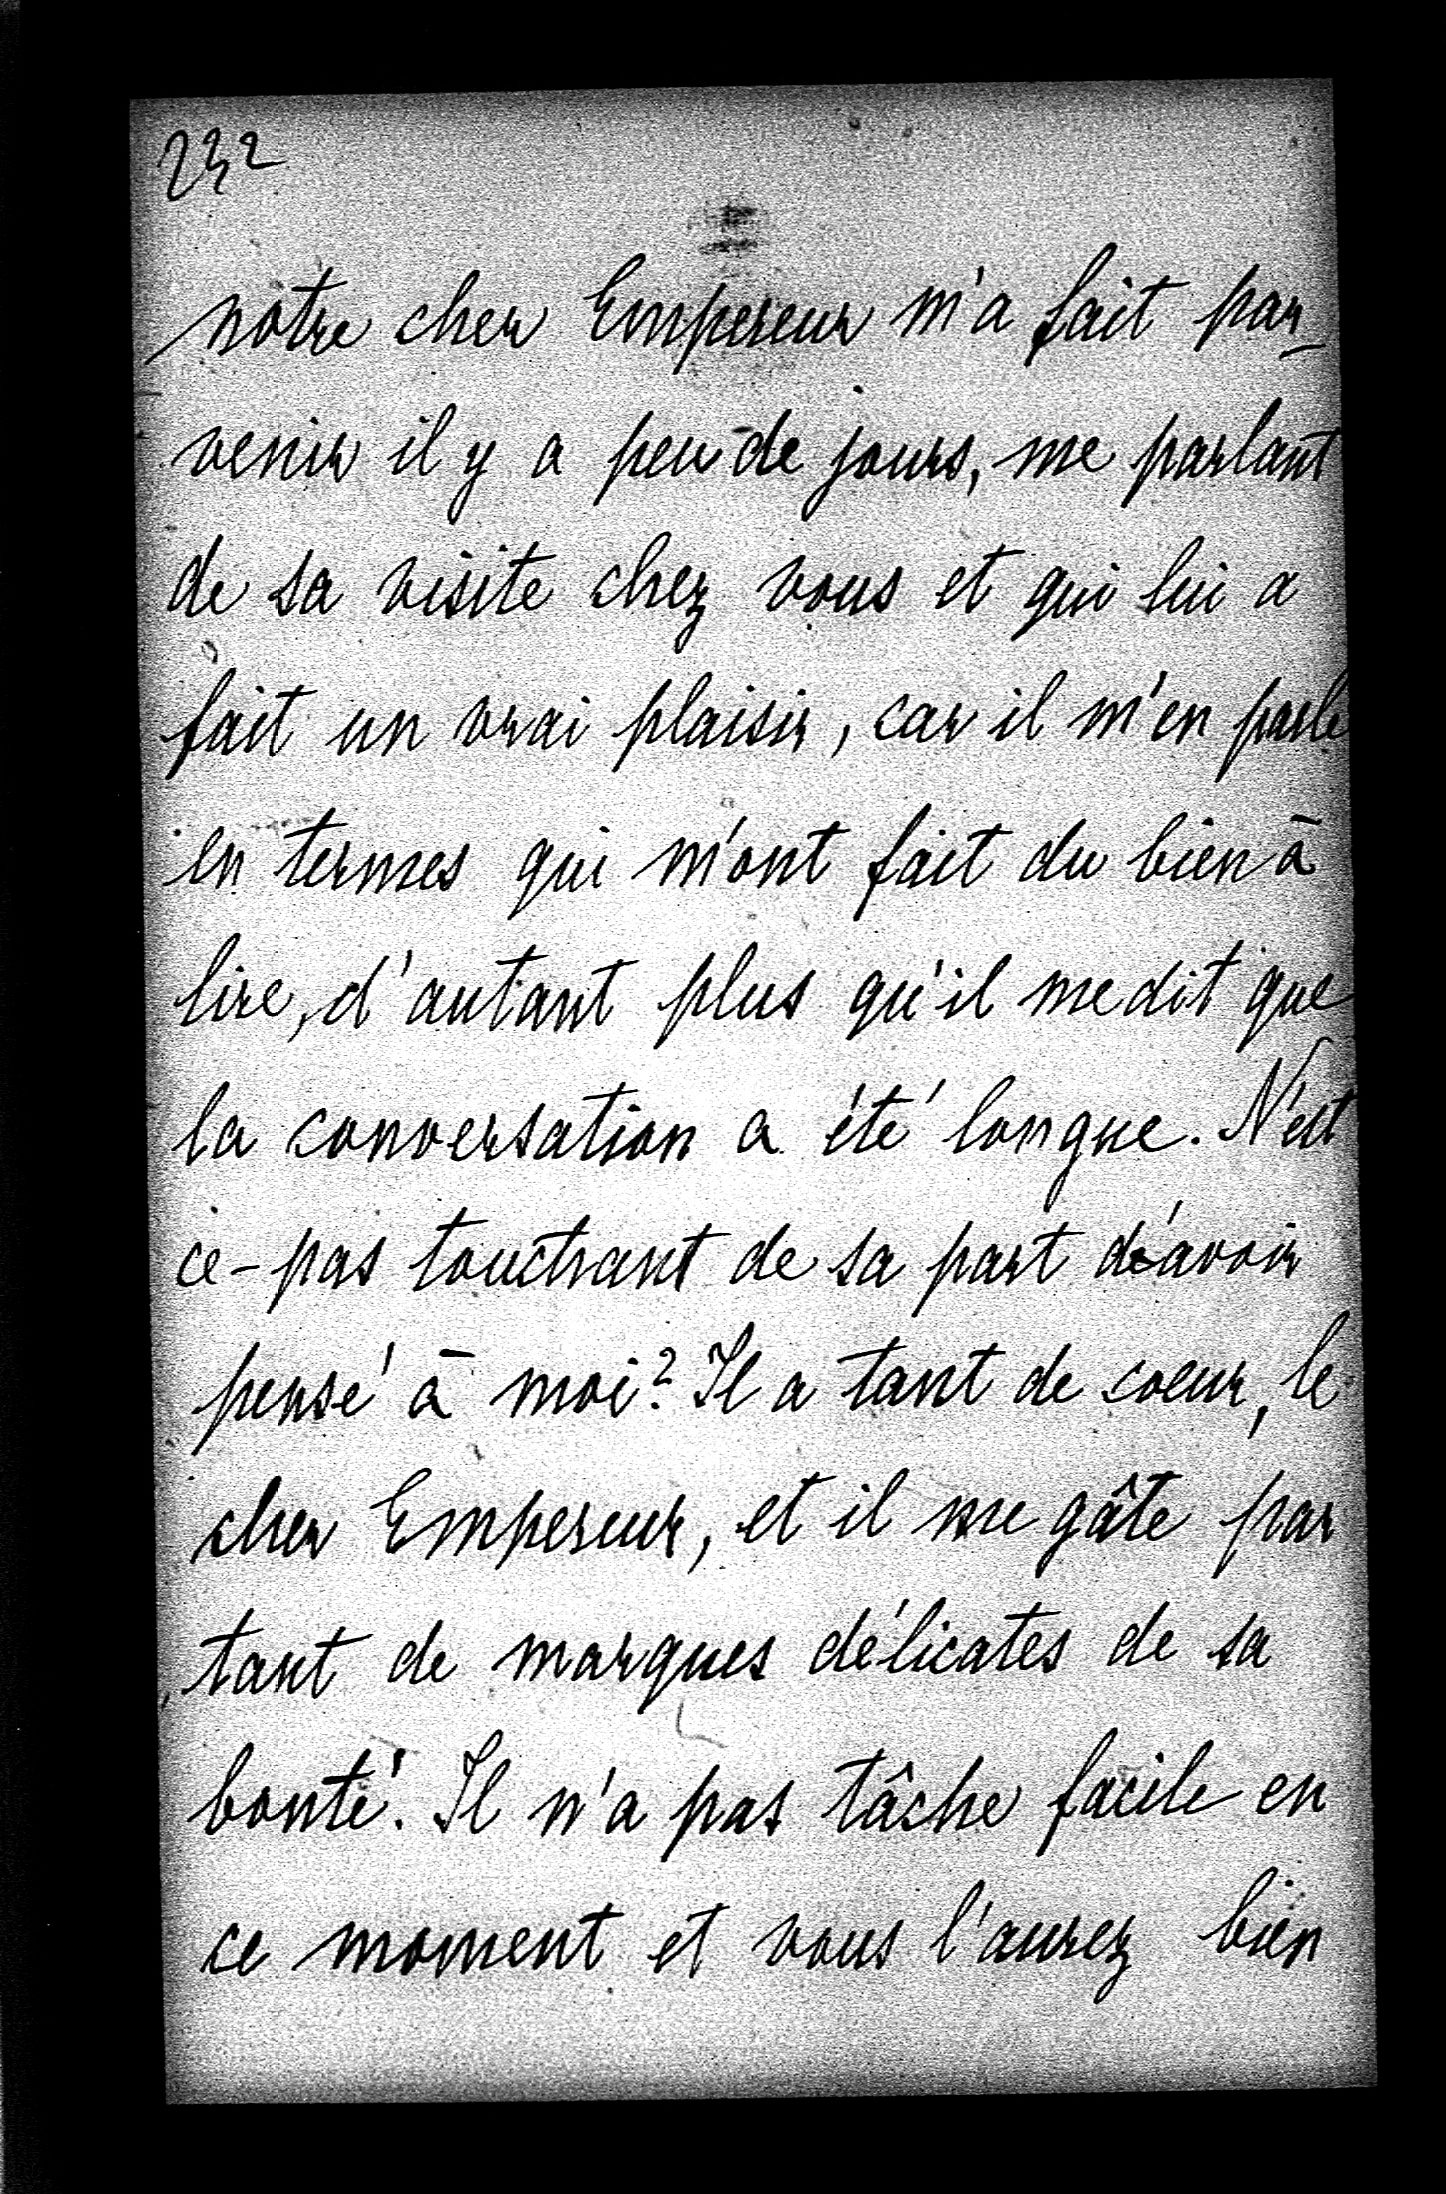 232
notre cher Empereur m'a fait par_
venir il y a peu de jours, me parlant
de sa visite chez vous et qui lui a
fait un vrai plaisir, car il m'en parle
en termes qui m'ont fait du bien à
lire, d'autant plus qu'il me dit que
la conversation a été longue. N'est
ce-pas touchant de sa part d'avoir
pensé à moi? Il a tant de coeur, le
cher Empereur, et il me gâte par
tant de marques délicates de sa
bonté. Il n'a pas tâche facile en
ce moment et vous l'aurez bien